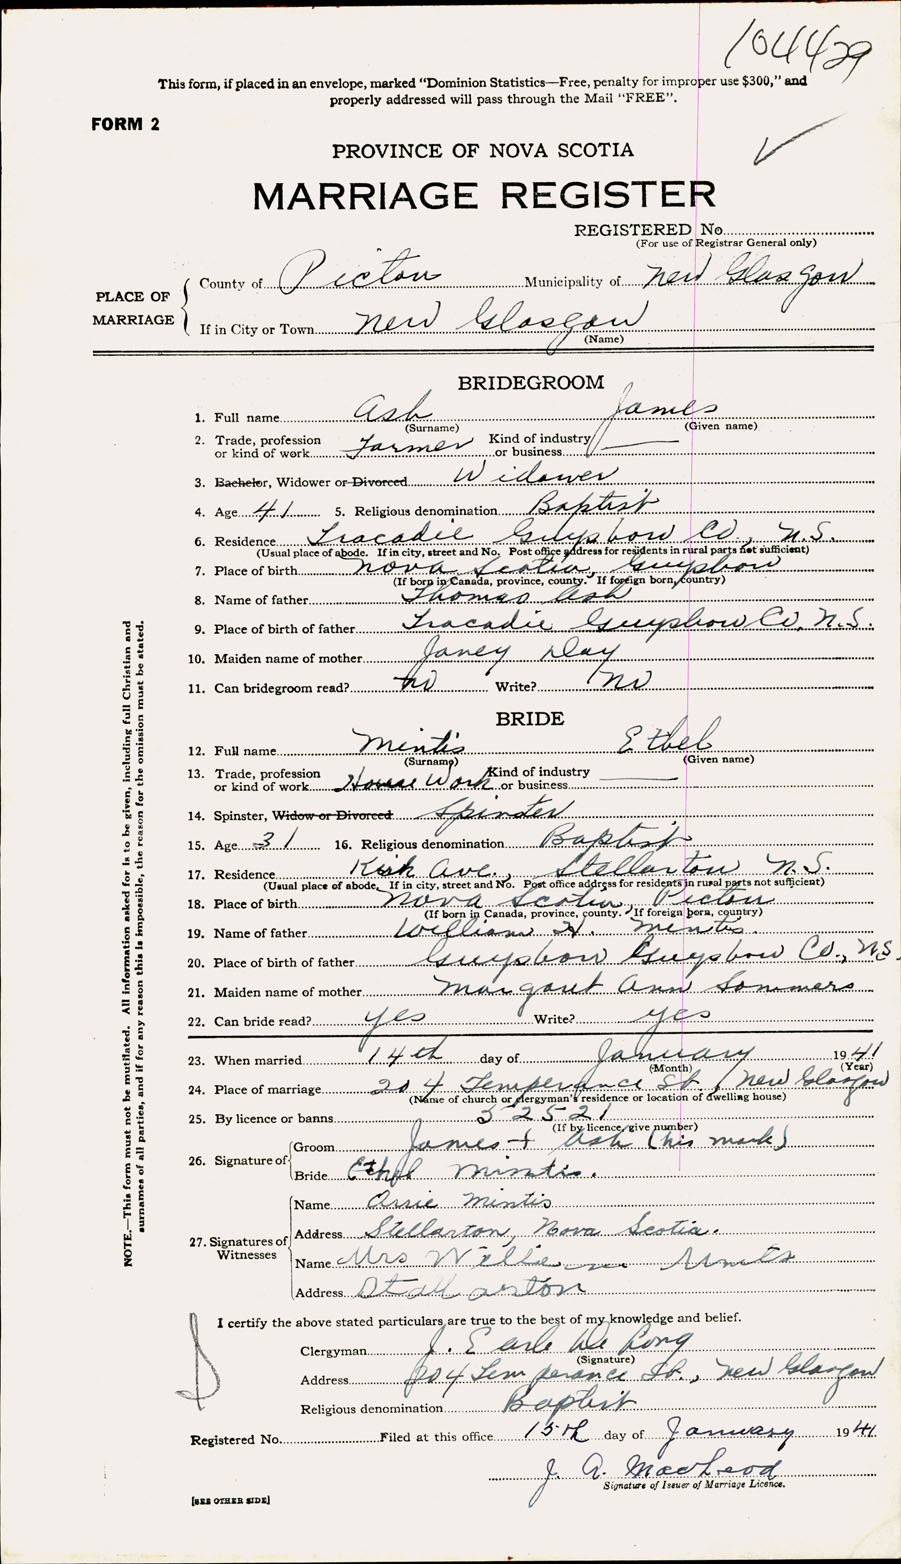 104429
This form, if placed in an envelope, marked "Dominion Statistics—Free, penalty for improper use $300," and
properly addressed will pass through the Mail "FREE".
FORM 2
PROVINCE OF NOVA SCOTIA
MARRIAGE REGISTER
REGISTERED No.
(For use of Registrar General only)
PLACE OF MARRIAGE
County of Pictou Municipality of New Glasgow
If in City or Town New Glasgow
(Name)
BRIDEGROOM
1. Full name Ash James
(Surname) (Given name)
2. Trade, profession or kind of work Farmer Kind of industry or business
3. Bachelor, Widower or Divorced Widower
4. Age 41 5. Religious denomination Baptist
6. Residence Tracadie Guysboro Co., N.S.
(Usual place of abode. If in city, street and No. Post office address for residents in rural parts not sufficient)
7. Place of birth Nova Scotia, Guysboro
(If born in Canada, province, county. If foreign born, country)
8. Name of father Thomas Ash
9. Place of birth of father Tracadie Guysboro Co, N.S.
10. Maiden name of mother Janey Day
11. Can bridegroom read? no Write? no
BRIDE
12. Full name Mintis Ethel
(Surname) (Given name)
13. Trade, profession or kind of work House Work Kind of industry or business
14. Spinster, Widow or Divorced Spinster
15. Age 31 16. Religious denomination Baptist
17. Residence Kirk Ave., Stellarton N.S.
(Usual place of abode. If in city, street and No. Post office address for residents in rural parts not sufficient)
18. Place of birth Nova Scotia, Pictou
(If born in Canada, province, county. If foreign born, country)
19. Name of father William H. Mintis.
20. Place of birth of father Guysboro Guysboro Co., N.S.
21. Maiden name of mother Margaret Ann Sommers
22. Can bride read? yes Write? yes
23. When married 14th day of January 1941
(Month) (Year)
24. Place of marriage 204 Temperance St., New Glasgow
(Name of church or clergyman's residence or location of dwelling house)
25. By licence or banns 32521
(If by licence, give number)
26. Signature of
Groom James + Ash (his mark)
Bride Ethel Mintis.
27. Signatures of Witnesses
Name Arrie Mintis
Address Stellarton, Nova Scotia.
Name Mrs Willie Mints
Address Stellarton
I certify the above stated particulars are true to the best of my knowledge and belief.
Clergyman J. Earle De Long
(Signature)
Address 204 Temperance St., New Glasgow
Religious denomination Baptist
Registered No. Filed at this office 15th day of January 1941
J. A. MacLeod
Signature of Issuer of Marriage Licence.
[SEE OTHER SIDE]
NOTE.—This form must not be mutilated. All information asked for is to be given, including full Christian and
surnames of all parties, and if for any reason this is impossible, the reason for the omission must be stated.